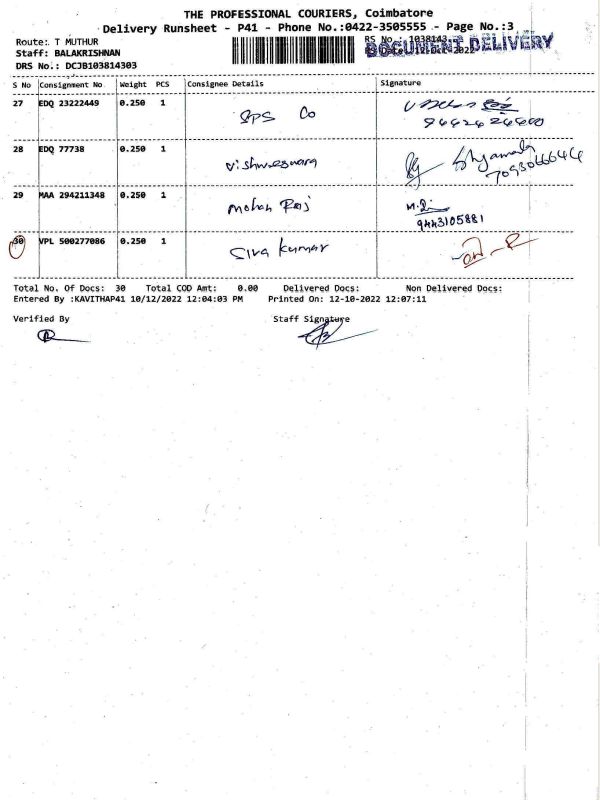 THE PROFESSIONAL COURIERS, Coimbatore
Delivery Runsheet - P41 - Phone No.:0422-3505555 - Page No.:3
Route: T MUTHUR
RS No.: 1038143
Staff: BALAKRISHNAN
DOCUMENT DELIVERY
DRS No.: DCJB103814303
S No Consignment No Weight PCS Consignee Details Signature
27 EDQ 23222449 0.250 1 SPS Co
28 EDQ 77738 0.250 1 Vishweswara Shyamala
7093066644
29 MAA 294211348 0.250 1 Mohan Raj
9443105881
30 VPL 500277086 0.250 1 Siva Kumar
Total No. Of Docs: 30 Total COD Amt: 0.00 Delivered Docs: Non Delivered Docs:
Entered By :KAVITHAP41 10/12/2022 12:04:03 PM Printed On: 12-10-2022 12:07:11
Verified By Staff Signature